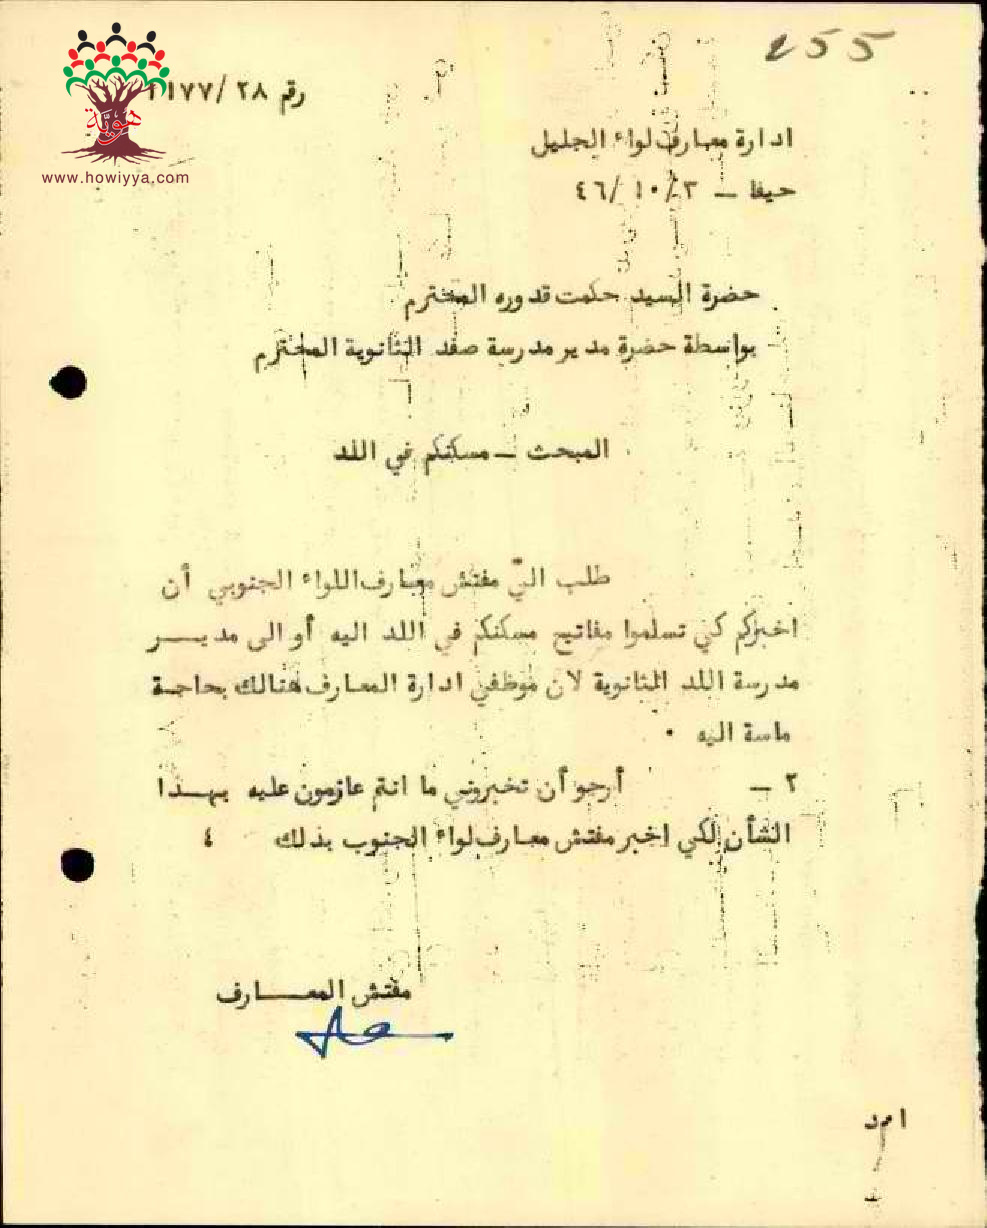 255
رقم ٢٨/
١٧٧
هويّة
www.howiyya.com
ادارة معارف لواء الجليل
حيفا — ٣/ ١٠/ ٤٦
حضرة السيد حكمت قدوره المحترم
بواسطة حضرة مدير مدرسة صفد الثانوية المحترم
المبحث — مسكنكم في اللد
طلب اليّ مفتش معارف اللواء الجنوبي أن
اخبركم كي تسلموا مفاتيح مسكنكم في اللد اليه أو الى مديـــر
مدرسة اللد الثانوية لان موظفي ادارة المعارف هنالك بحاجـة
ماسة اليه .
٢ — أرجو أن تخبروني ما انتم عازمون عليه بهــذا
الشأن لكي اخبر مفتش معارف لواء الجنوب بذلك ؛
مفتش المعـــارف